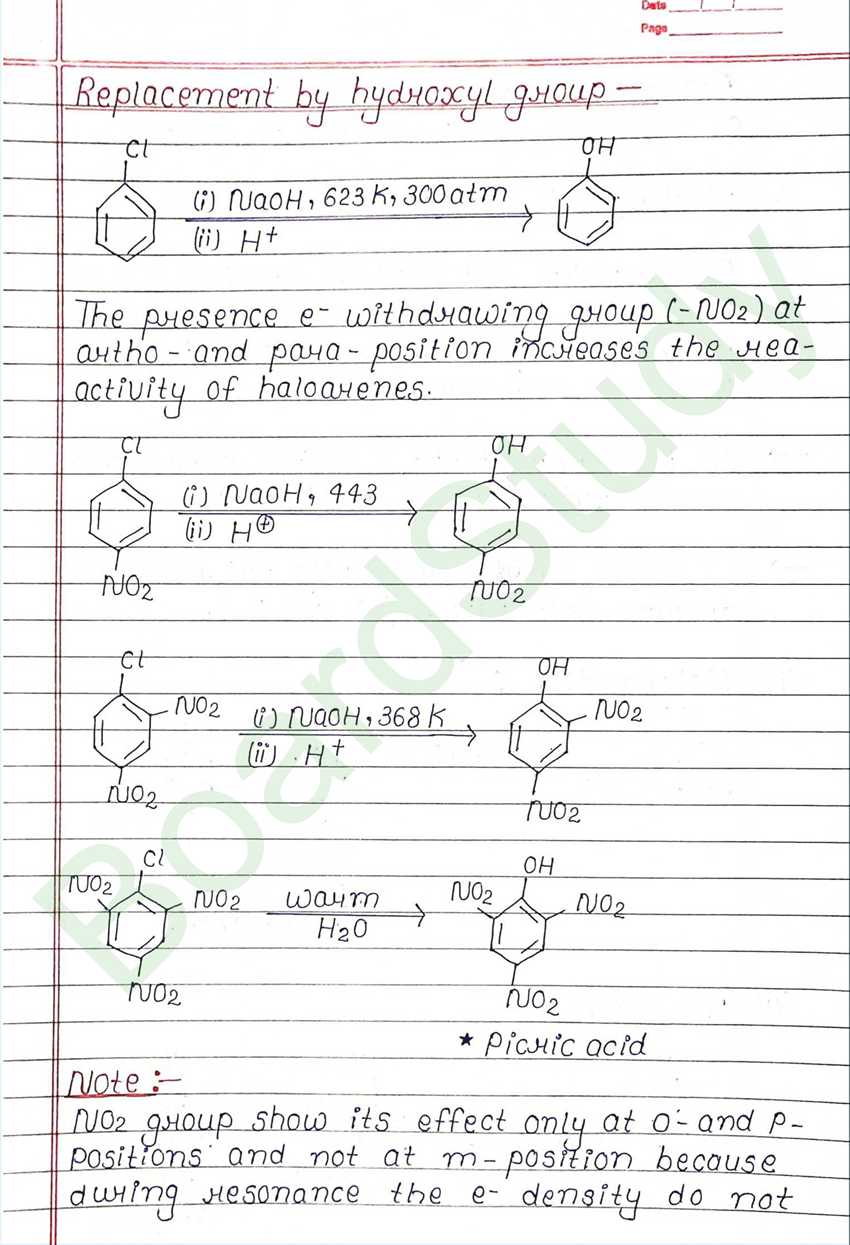 Date
Page
Replacement by hydroxyl group —
Cl
OH
(i) NaOH, 623 K, 300 atm
(ii) H+
The presence e- withdrawing group (-NO2) at
artho - and para - position increases the rea-
activity of haloarenes.
Cl
OH
(i) NaOH, 443
(ii) H⊕
NO2
NO2
Cl
OH
NO2
NO2
(i) NaOH, 368 K
(ii) . H+
NO2
NO2
Cl
OH
NO2
NO2
NO2
NO2
warm
H2O
NO2
NO2
* Picric acid
Note :-
NO2 group show its effect only at o- and p-
positions and not at m - position because
during resonance the e- density do not
BoardStudy